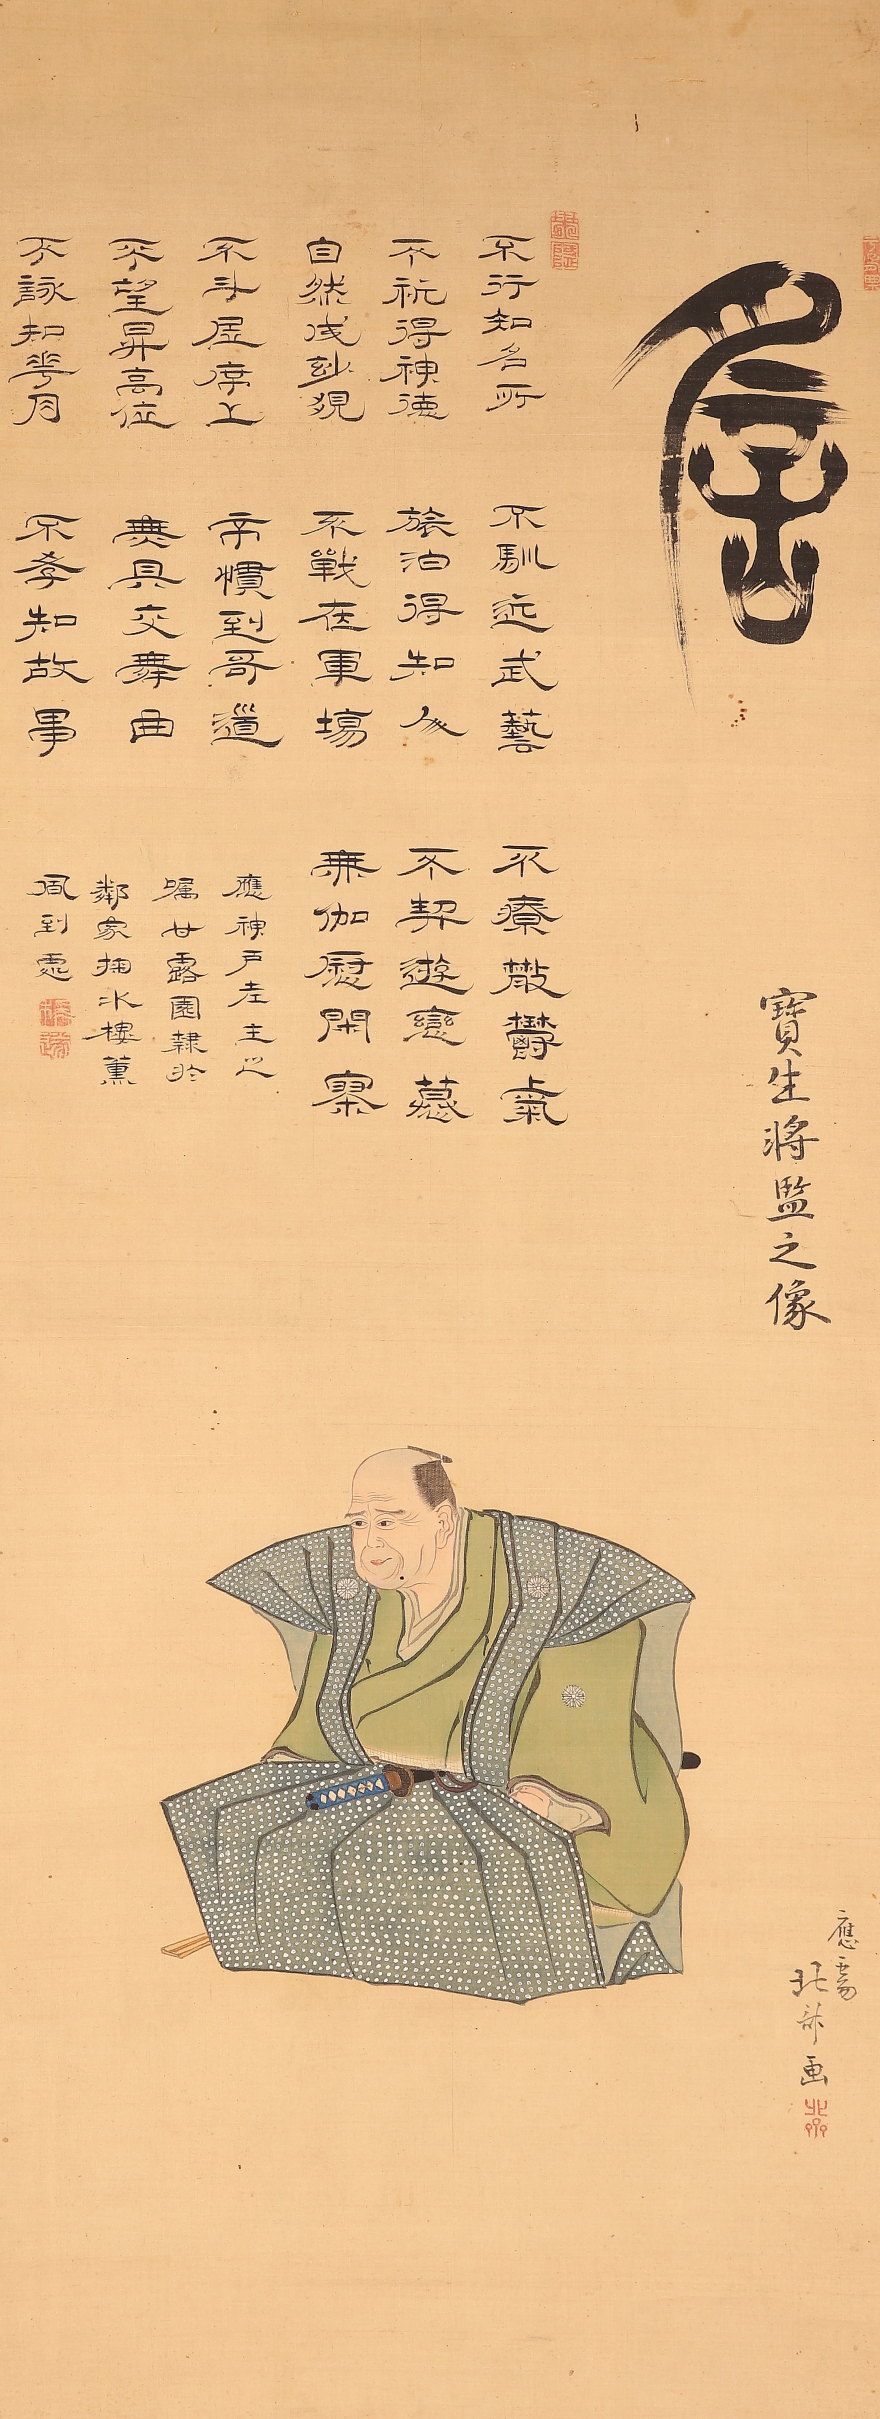 寶生將監之像
不行知名所 不馴近武藝 不療散鬱氣
不祝得神徳 旅泊得知人 不契遊戀慕
自然成妙 不戰在軍場 無伽慰閑寂
不斗居席上 不慣到哥道
不望昇高位 無具交舞曲
不詠知花月 不知故事
應神戸老主之
囑甘露園隷於
鄰家掬水樓薫
風到處
應需
北画